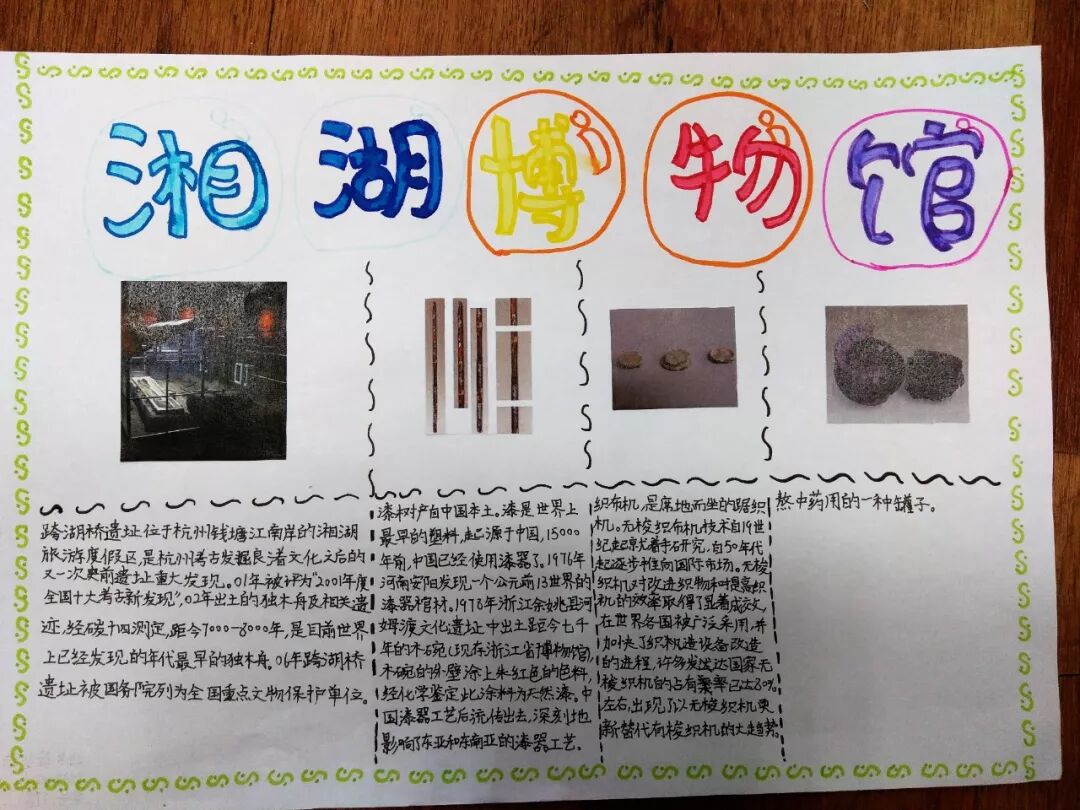 湘湖博物馆
跨湖桥遗址位于杭州钱塘江南岸的湘湖
旅游度假区,是杭州考古发掘良渚文化之后的
又一次史前遗址重大发现。01年被评为“2001年度
全国十大考古新发现”,02年出土的独木舟及相关遗
迹,经碳十四测定,距今7000-8000年,是目前世界
上已经发现的年代最早的独木舟。06年跨湖桥
遗址被国务院列为全国重点文物保护单位。
漆树产自中国本土。漆是世界上
最早的塑料,起源于中国,15000
年前,中国已经使用漆器了。1976年
河南安阳发现一个公元前13世界的
漆器棺材。1978年浙江余姚县河
姆渡文化遗址中出土距今七千
年的木碗(现存浙江省博物馆),
木碗的外壁涂上朱红色的色料,
经化学鉴定此涂料为天然漆。中
国漆器工艺后流传出去,深刻地
影响了东亚和东南亚的漆器工艺。
织布机,是席地而坐的踞织
机。无梭织布机技术自19世
纪起就着手研究,自50年代
起逐步推向国际市场。无梭
织机对改进织物和提高织
机的效率取得了显着成效,
在世界各国被广泛采用,并
加快了织机造设备改造
的进程,许多发达国家无
梭织机的占有率已达80%
左右,出现了以无梭织机更
新替代有梭织机的大趋势。
熬中药用的一种罐子。